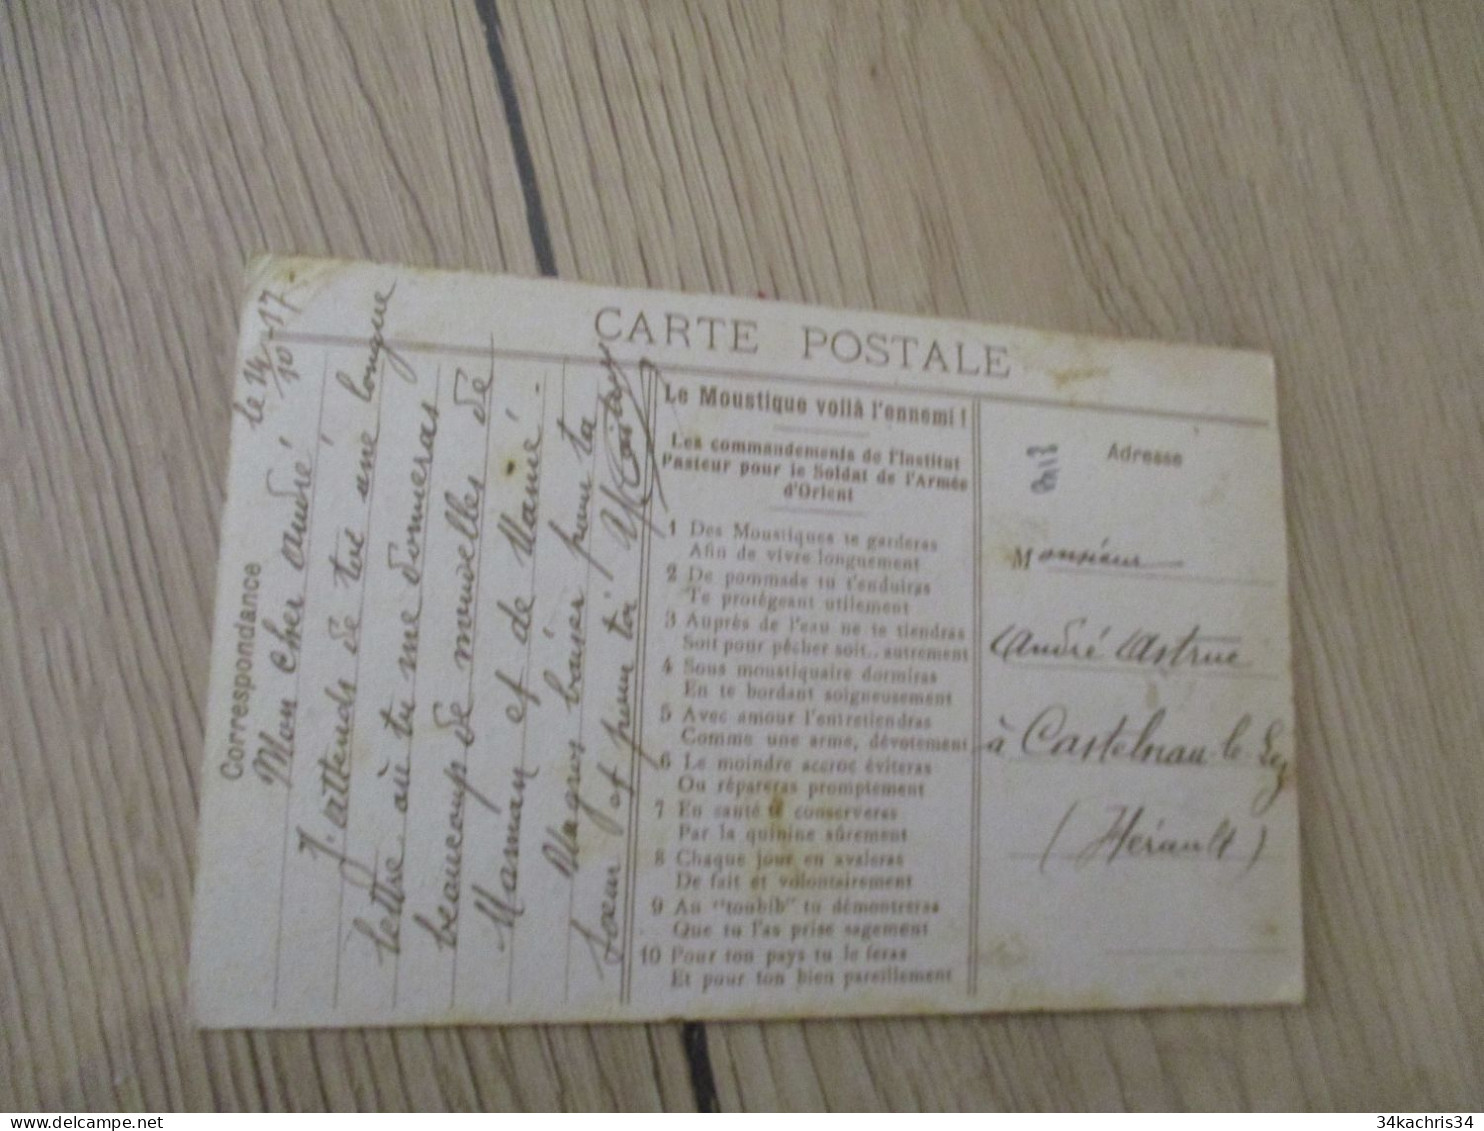 CARTE POSTALE
Correspondance
le 14/10-17
Mon cher André
J'attends de toi une longue
lettre où tu me donneras
beaucoup de nouvelles de
Maman et de Mamé.
gros baiser pour ta
sœur et pour toi
Le Moustique voilà l'ennemi !
Les commandements de l'Institut
Pasteur pour le Soldat de l'Armée
d'Orient
1 Des Moustiques te garderas
Afin de vivre longuement
2 De pommade tu t'enduiras
Te protégeant utilement
3 Auprès de l'eau ne te tiendras
Soit pour pêcher soit.. autrement
4 Sous moustiquaire dormiras
En te bordant soigneusement
5 Avec amour l'entretiendras
Comme une arme, dévotement
6 Le moindre accroc éviteras
Ou répareras promptement
7 En santé te conserveras
Par la quinine sûrement
8 Chaque jour en avaleras
De fait et volontairement
9 Au "toubib" tu démontreras
Que tu l'as prise sagement
10 Pour ton pays tu le feras
Et pour ton bien pareillement
Adresse
Monsieur
André Astruc
à Castelnau-le Lez
(Hérault)
34kachris34
delcampe.net